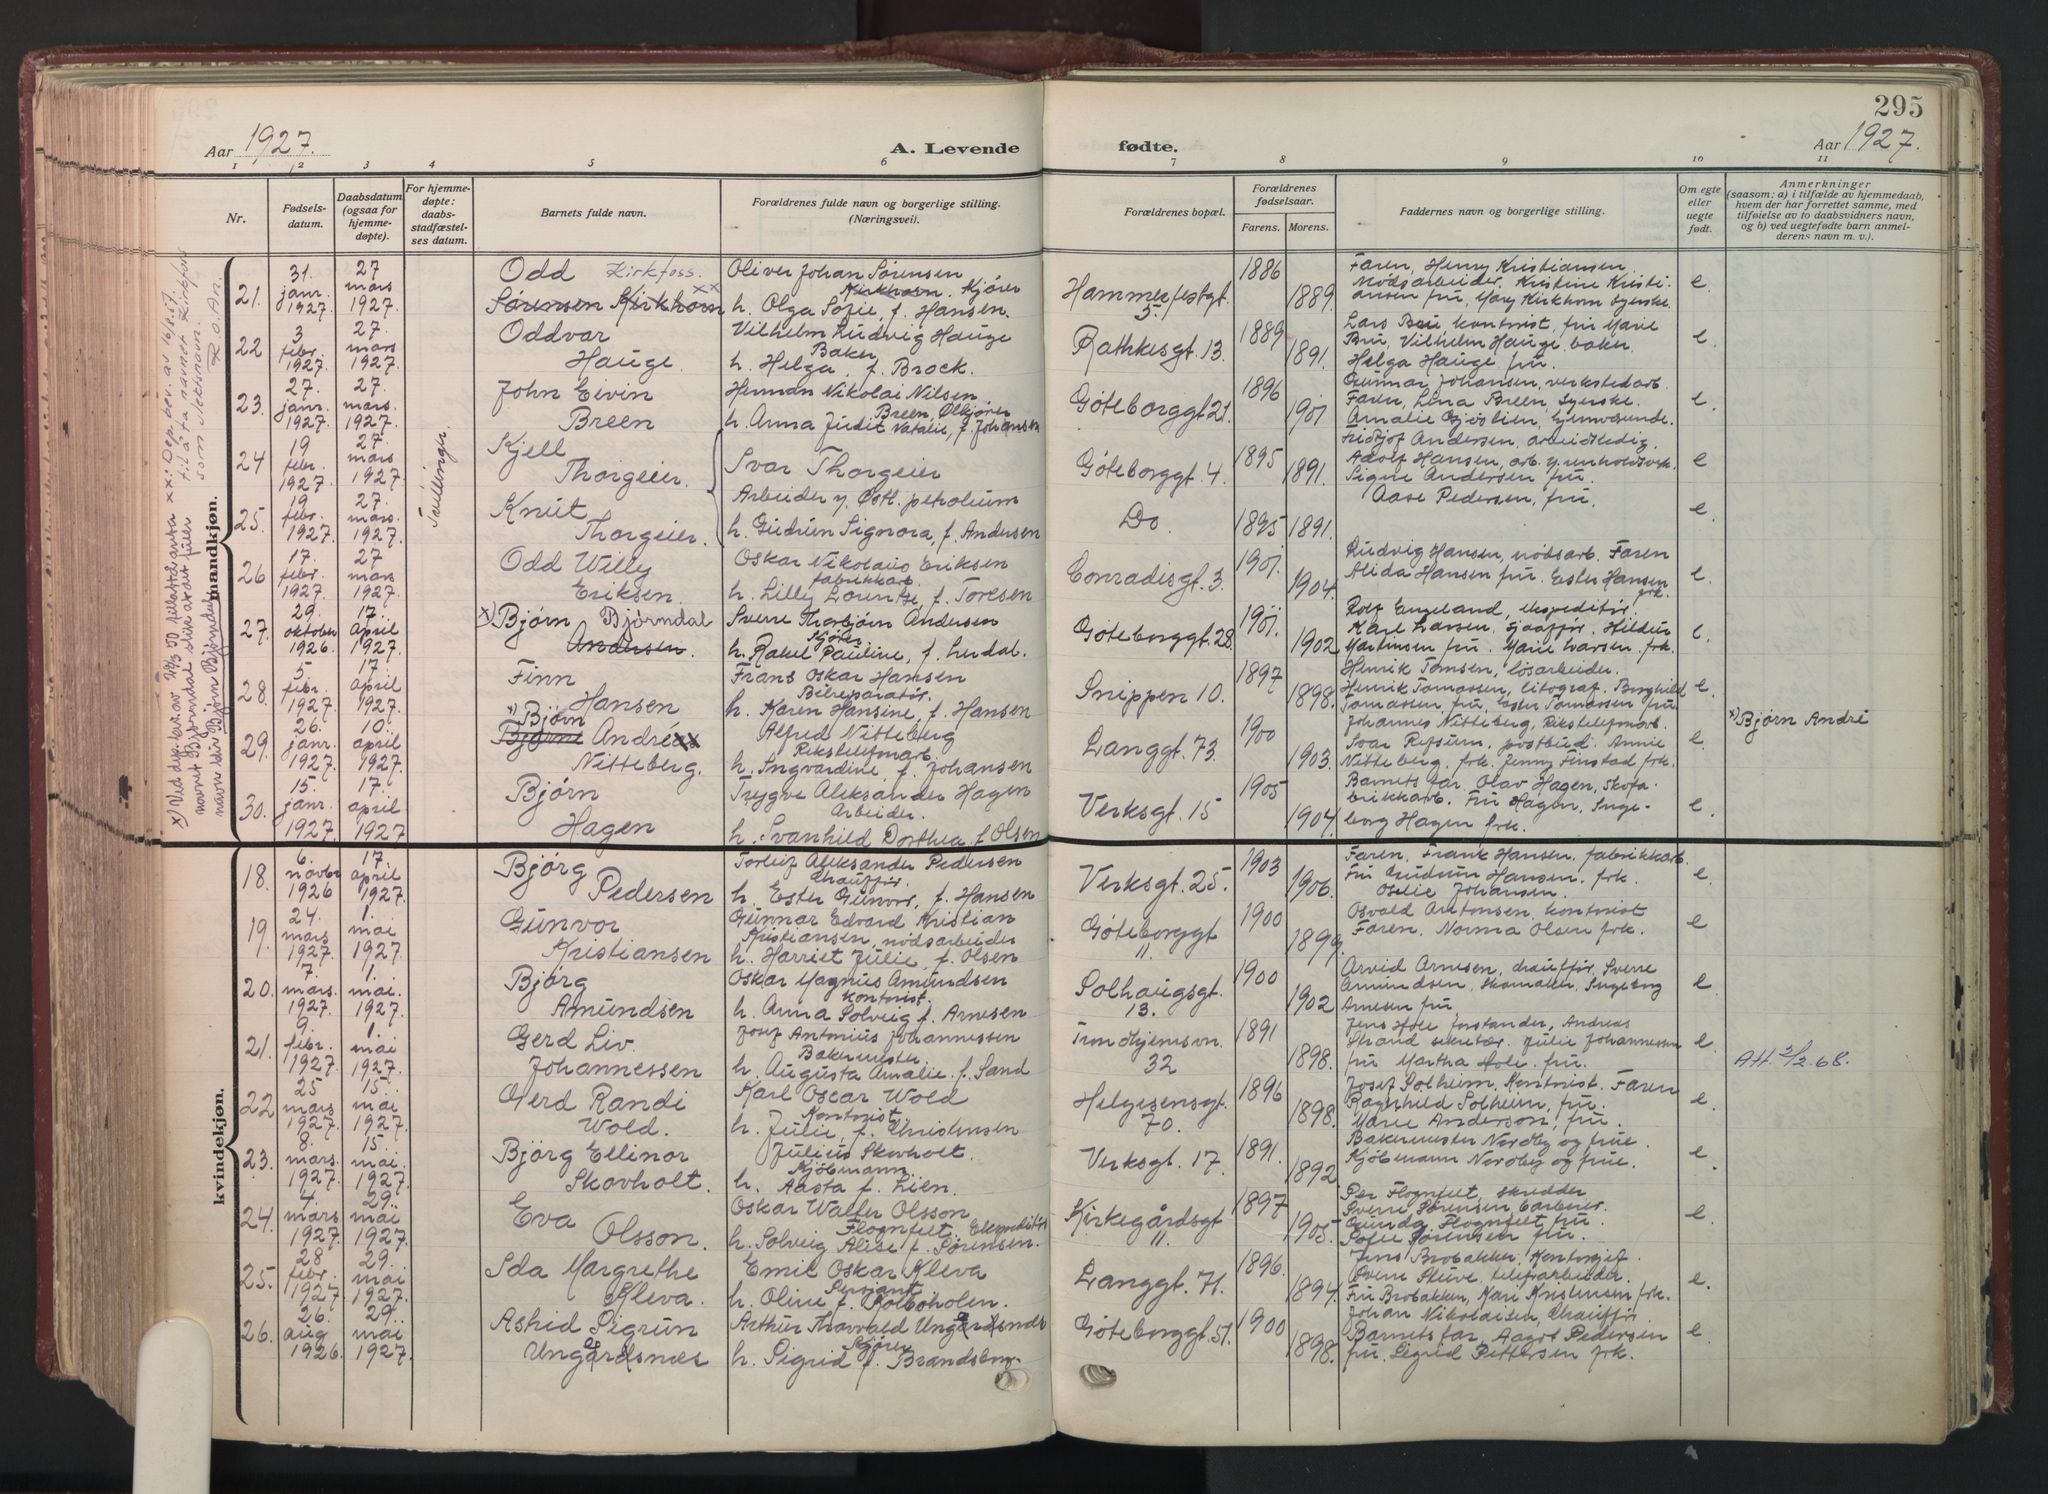 295
Aar 1927.
A. Levende fødte.
Aar 1927.
1 2 3 4 5 6 7 8 9 10 11
Nr.
Fødsels-
datum.
Daabsdatum
(ogsaa for
hjemme-
døpte).
For hjemme-
døpte:
daabs-
stadfæstel-
ses datum.
Barnets fulde navn.
Forældrenes fulde navn og borgerlige stilling.
(Næringsvei).
Forældrenes bopæl.
Forældrenes
fødselsaar.
Farens. Morens.
Faddernes navn og borgerlige stilling.
Om egte
eller
uegte
født.
Anmerkninger
(saasom: a) i tilfælde av hjemmedaab,
hvem der har forrettet samme, med
tilføielse av to daabsvidners navn,
og b) ved uegtefødte barn anmel-
derens navn m. v.).
mandkjøn.
21. 31. janr. 1927 27 mars 1927.
Odd Kirkfoss. xx
Sørensen Kirkhorn
Oliver Johan Sørensen
Kirkhorn. Kjører
h. Olga Sofie, f. Hansen.
Hammerfestgt. 5. 1886 1889.
Faren, Henry Kristiansen
Nødsarbeider, Kristine Kristi-
ansen fru, Mary Kirkhorn syerske. e.
22 3 febr. 1927. 27. mars 1927.
Oddvar
Hauge.
Vilhelm Ludvig Hauge
Baker
h. Helga, f. Brock.
Rathkesgt. 13. 1889 1891.
Lars Bru kontorist, fru Marie
Bru, Vilhelm Hauge baker.
Helga Hauge fru. e.
23. 27. janr. 1927 27. mars. 1927.
John Eivin
Breen
Herman Nikolai Nilsen
Breen, Ølkjører
h. Anna Judit Natalie, f. Johansen
Göteborggt 21. 1896 1901
Gunnar Johansen, verkstedarb.
Faren, Lina Breen, syerske. e.
24 19 febr. 1927 27 mars 1927
Tvillinger.
Kjell
Thorgeier.
Ivar Thorgeier
Göteborggt. 4. 1895 1891.
Fridtjof Andersen, arbeidsledig.
Adolf Hansen, arb. v. renholdsvrk.
Signe Andersen fru.
Aase Pedersen, fru e
25. 19 febr. 1927. 27. mars. 1927.
Knut
Thorgeier.
Arbeider v. Østl. petroleum
h. Gudrun Signora, f. Andersen
Do 1895 1891. e.
26 17 febr. 1927. 27 mars 1927.
Odd Willy
Eriksen.
Oskar Nikolaus Eriksen
fabrikkarb.
h. Lilly Lorentze f. Toresen
Conradisgt. 3. 1901. 1904.
Ludvig Hansen, nødsarb. Faren
Alida Hansen fru. Ester Hansen
frk. e.
27. 29. oktober 1926. 17. april 1927.
x) Bjørn Bjørndal
Andersen.
Sverre Thorbjørn Andersen
Kjører
h. Rakel Pauline, f. Lerdal.
Göteborggt. 28. 1901. 1902
Rolf Engeland, ekspeditør.
Karl Larsen. sjaafør. Hildur
Martinsen fru. Marie Larsen. frk. e.
28. 5 febr. 1927. 17 april 1927.
Finn
Hansen
Frans Oskar Hansen
Bilreparatør.
h. Karen Hansine, f. Hansen
Snippen 10. 1897 1898.
Henrik Tomsen, løsarbeider.
Henrik Tomassen, litograf. Borghild
Tomassen fru, Ester Tomassen fru e.
29. 26. janr. 1927. 10. april 1927.
x) Bjørn
Bjarne André xx
Nitteberg.
Alfred Nitteberg
Rikstelefmarb.
h. Ingvardine, f. Johansen
Langgt. 73. 1900 1903.
Johannes Nitteberg, Rikstelefmarb.
Ivar Refsum. postbud. Annie
Nitteberg. frk. Jenny Finstad frk. e.
x) Bjørn André
30. 15. janr. 1927. 17. april 1927
Bjørn
Hagen
Trygve Aleksander Hagen
Arbeider.
h. Svanhild Dorthea f. Olsen
Verksgt. 15 1905 1904.
Barnets far, Olav Hagen, Skofa-
brikkarb. Fru Hagen, Inge-
borg Hagen frk. e.
kvindekjøn.
18. 6. novbr 1926 17. april 1927.
Bjørg
Pedersen
Torleif Aleksander Pedersen
Chauffør.
h. Ester Gunvor, f. Hansen
Verksgt. 25. 1903 1906.
Faren. Frank Hansen. fabrikkarb.
Fru Gudrun Hansen. frk.
Oselie Johansen. e.
19. 24. mars 1927 1. mai 1927.
Gunvor
Kristiansen
Gunnar Edvard Kristian
Kristiansen, nødsarbeider
h. Harriet Julie, f. Olsen
Göteborggt 11. 1900 1899
Osvald Antonsen, kontorist
Faren. Norma Olsen frk. e
20. 7. mars. 1927. 1. mai. 1927.
Bjørg
Amundsen
Oskar Magnus Amundsen
kontorist.
h. Anna Solveig f. Arnesen
Solhaugsgt. 13. 1900 1902
Arvid Arnesen, chauffør. Sverre
Amundsen, skomaker, Ingeborg
Arnesen fru e.
21. 9. febr. 1927 1. mai 1927.
Gerd Liv
Johannessen
Josef Antonius Johannessen
Bakermester.
h. Augusta Amalie f. Sand
Trondhjemsvn. 32 1891 1898.
Jens Hole forstander, Andreas
Strand sekretær. Julie Johannessen
fru Martha Hole. fru. e.
AH. 2/2 68.
22 25 mars 1927. 15. mai 1927.
Gerd Randi
Wold.
Karl Oscar Wold
Kontorist
h. Julie, f. Christensen
Helgesensgt. 70. 1896 1898.
Josef Solheim, Kontorist. Faren
Ragnhild Solheim, fru.
Marie Anderson, fru. e.
23. 8. mars. 1927. 15. mai. 1927.
Bjørg Ellinor
Skovholt.
Julius Skovholt.
Kjøbmann.
h. Aasta f. Lien.
Verksgt. 17. 1891. 1892
Bakermester Nordby og frue.
Kjøbmann Nordby og frue. e.
24. 4. mars 1927. 29. mai 1927.
Eva
Olsson.
Oskar Walter Olsson
h. Solveig Alise f. Sørensen.
Kirkegårdsgt 11. 1897 1905
Per Flognfelt, skredder
Sverre Sørensen barberer.
Gunda Flognfelt fru
Sofie Sørensen fru. e.
25. 28 febr. 1927 29. mai 1927.
Ida Margrethe
Kleva.
Emil Oskar Kleva
Sersjant
h. Oline f. Kolboholen.
Langgt. 71. 1896. 1894.
Jens Brobakken, Kontorsjef.
Sverre Stuve, telefarbeider.
Fru Brobakken, Kari Kristensen frk. e.
26. 26. aug 1926. 29. mai 1927.
Astrid Sigrun
Ungårdsnæs
Arthur Thorvald Ungårdsnes
Kjører
h. Sigrid f. Brandsberg.
Göteborggt. 51. 1900 1898.
Johan Nikolaisen, Chauffør.
Barnets far, Aagot Pedersen
fru. Sigrid Pettersen frk. e
x) Ved dep. bev. av 10/3 50 tillatt å anta
navnet Bjørndal
navn blir Bjørn Bjørndal
xx: Dep. bev. av 16/8. 57.
til å ta navnet Kirkfoss
som slektsnavn. R.o.An.